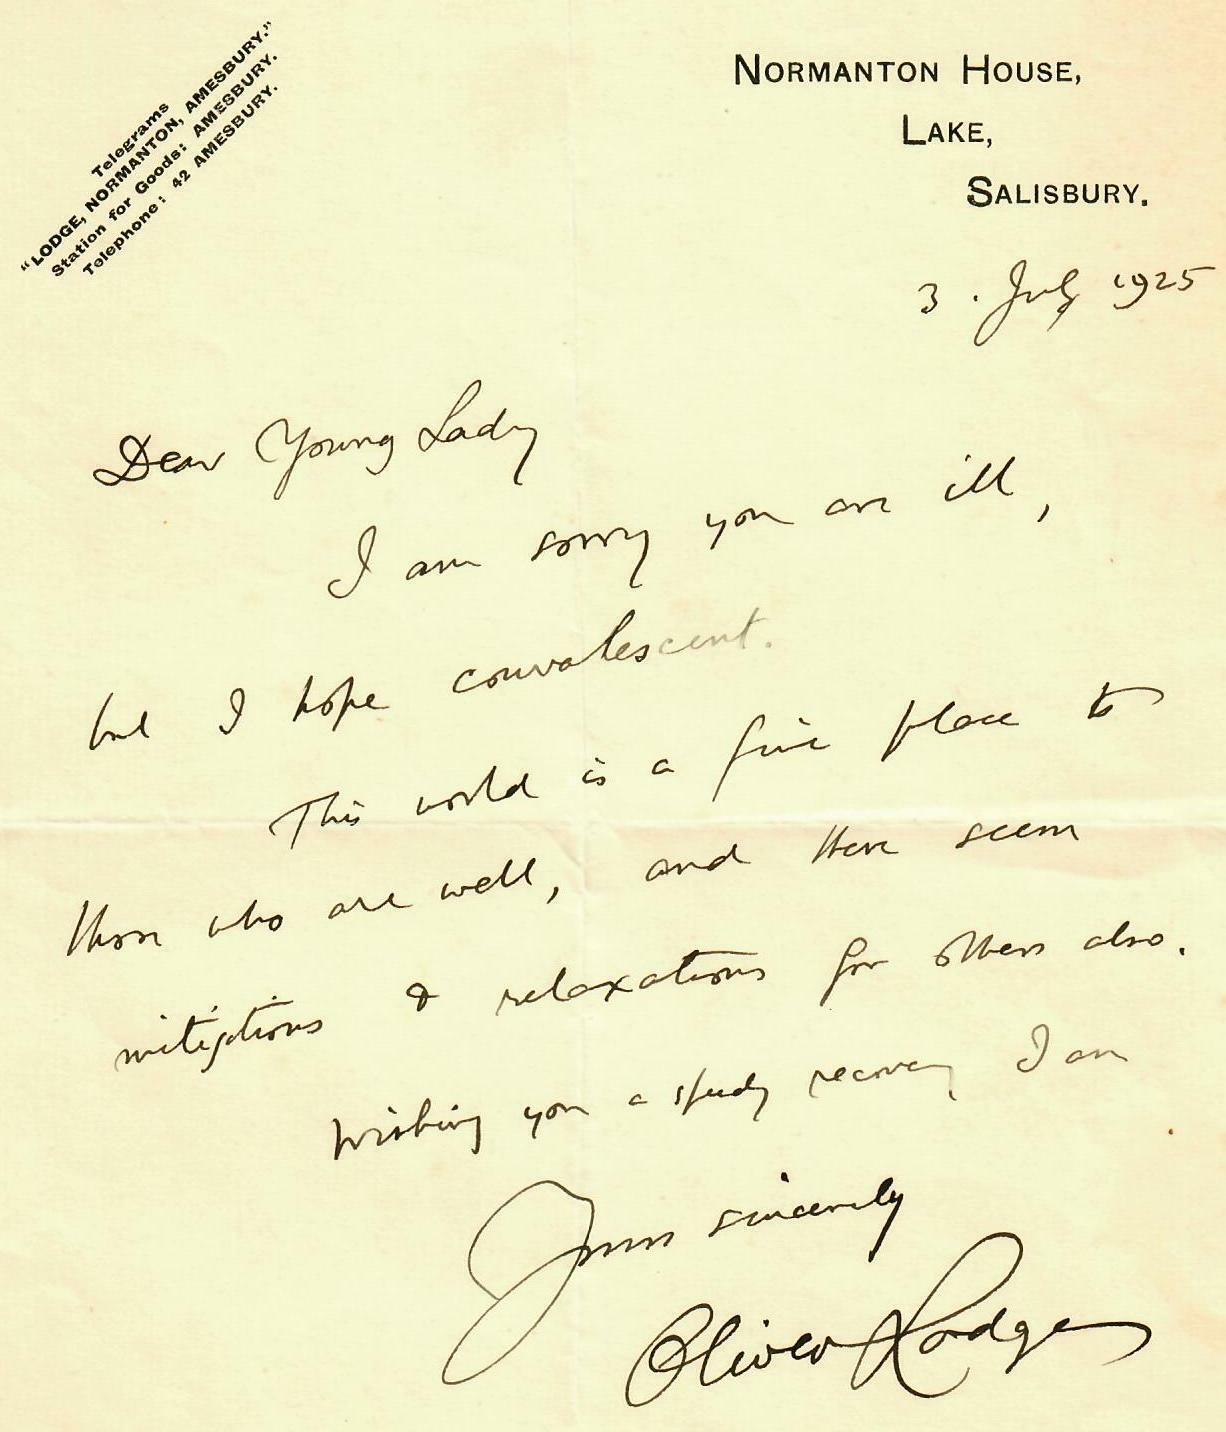 Telegrams
"LODGE, NORMANTON, AMESBURY."
Station for Goods: AMESBURY.
Telephone: 42 AMESBURY.
NORMANTON HOUSE,
LAKE,
SALISBURY.
3. July 1925
Dear Young Lady
I am sorry you are ill,
but I hope convalescent.
This world is a fine place to
those who are well, and there seem
mitigations & relaxations for others also.
Wishing you a steady recovery I am
Yours sincerely
Oliver Lodge